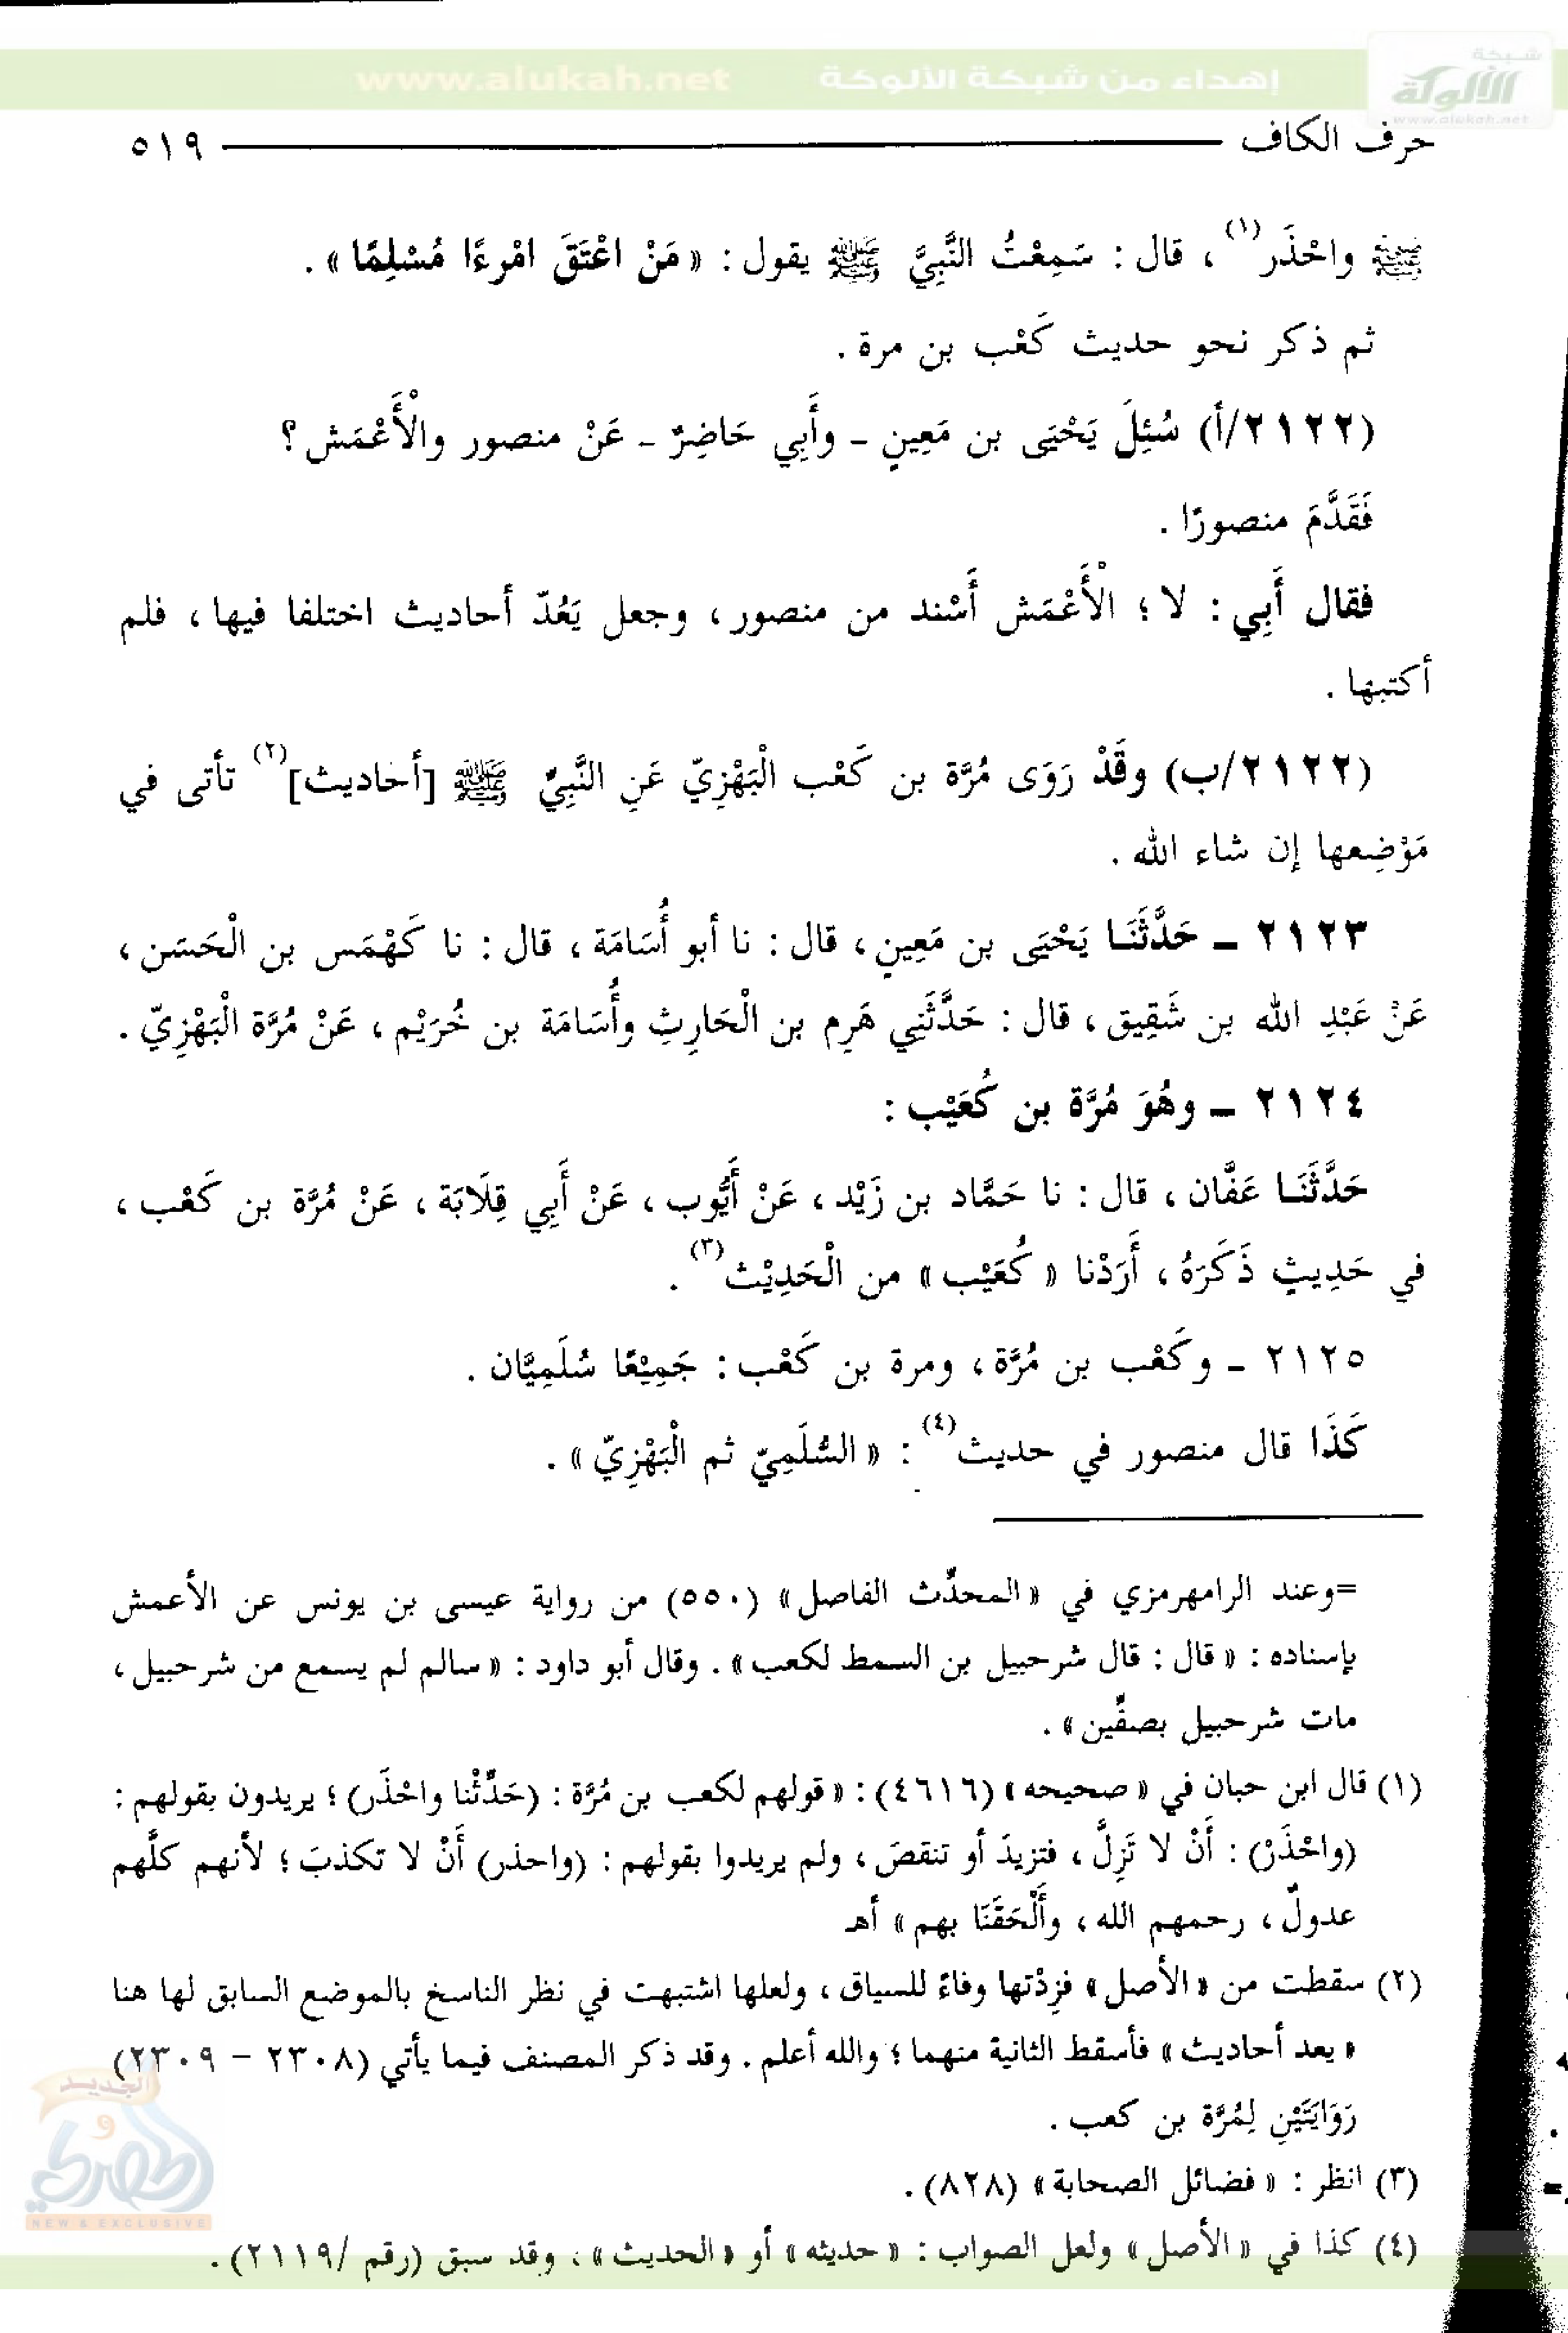 شبكة
الألوكة
www.alukah.net
إهداء من شبكة الألوكة www.alukah.net
حرف الكاف ٥١٩
ﷺ واحْذَر(١) ، قال : سَمِعْتُ النَّبِيَّ ﷺ يقول : « مَنْ اعْتَقَ امْرءًا مُسْلِمًا » .
ثم ذكر نحو حديث كَعْب بن مرة .
(٢١٢٢/أ) سُئِلَ يَحْيَى بن مَعِينٍ - وأَبِي حَاضِرٌ - عَنْ منصور والْأَعْمَش ؟
فَقَدَّمَ منصورًا .
فقال أَبِي : لا ؛ الْأَعْمَش أَسْند من منصور ، وجعل يَعُدّ أحاديث اختلفا فيها ، فلم
أكتبها .
(٢١٢٢/ب) وقَدْ رَوَى مُرَّة بن كَعْب الْبَهْزِيّ عَنِ النَّبِيِّ ﷺ [أحاديث](٢) تأتى في
مَوْضِعها إن شاء الله .
٢١٢٣ - حَدَّثَنَا يَحْيَى بن مَعِينٍ ، قال : نا أبو أُسَامَة ، قال : نا كَهْمَس بن الْحَسَن ،
عَنْ عَبْدِ الله بن شَقِيق ، قال : حَدَّثَنِي هَرِم بن الْحَارِثِ وأُسَامَة بن خُرَيْم ، عَنْ مُرَّة الْبَهْزِيّ .
٢١٢٤ - وهُوَ مُرَّة بن كُعَيْب :
حَدَّثَنَا عَفَّان ، قال : نا حَمَّاد بن زَيْد ، عَنْ أَيُّوب ، عَنْ أَبِي قِلَابَة ، عَنْ مُرَّة بن كَعْب ،
في حَدِيثٍ ذَكَرَهُ ، أَرَدْنا « كُعَيْب » من الْحَدِيْث(٣) .
٢١٢٥ - وكَعْب بن مُرَّة ، ومرة بن كَعْب : جَمِيْعًا سُلَمِيَّان .
كَذَا قال منصور في حديث(٤) : « السُّلَمِيّ ثم الْبَهْزِيّ » .
=وعند الرامهرمزي في « المحدِّث الفاصل » (٥٥٠) من رواية عيسى بن يونس عن الأعمش
بإسناده : « قال : قال شرحبيل بن السمط لكعب » . وقال أبو داود : « سالم لم يسمع من شرحبيل ،
مات شرحبيل بصفِّين » .
(١) قال ابن حبان في « صحيحه » (٤٦١٦) : « قولهم لكعب بن مُرَّة : (حَدِّثْنا واحْذَر) ؛ يريدون بقولهم :
(واحْذَرْ) : أَنْ لا تَزِلَّ ، فتزيدَ أو تنقصَ ، ولم يريدوا بقولهم : (واحذر) أَنْ لا تكذبَ ؛ لأنهم كلَّهم
عدولٌ ، رحمهم الله ، وأَلْحَقَنَا بهم » أهـ
(٢) سقطت من « الأصل » فزِدْتها وفاءً للسياق ، ولعلها اشتبهت في نظر الناسخ بالموضع السابق لها هنا
« يعد أحاديث » فأسقط الثانية منهما ؛ والله أعلم . وقد ذكر المصنف فيما يأتي (٢٣٠٨ - ٢٣٠٩)
رَوَايَتَيْنِ لِمُرَّة بن كعب .
(٣) انظر : « فضائل الصحابة » (٨٢٨) .
(٤) كذا في « الأصل » ولعل الصواب : « حديثه » أو « الحديث » ، وقد سبق (رقم /٢١١٩) .
الجديد
و
NEW & EXCLUSIVE